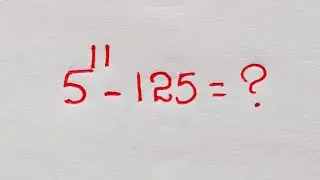 5¹¹ - 125 = ?